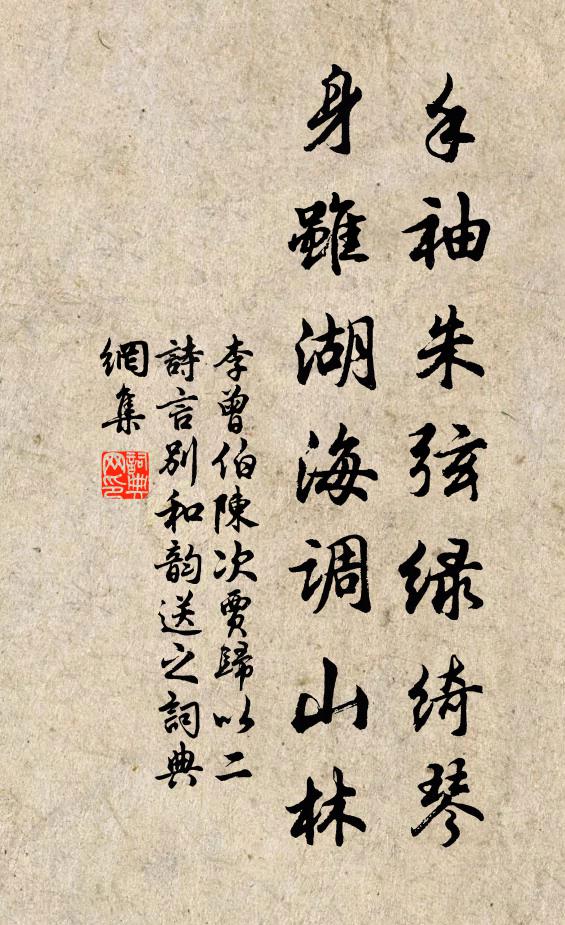 手袖朱弦緑綺琴
身雖湖海調山林
李曾伯陳次賈歸以二
詩言別和韵送之詞典
網集
詞典網印